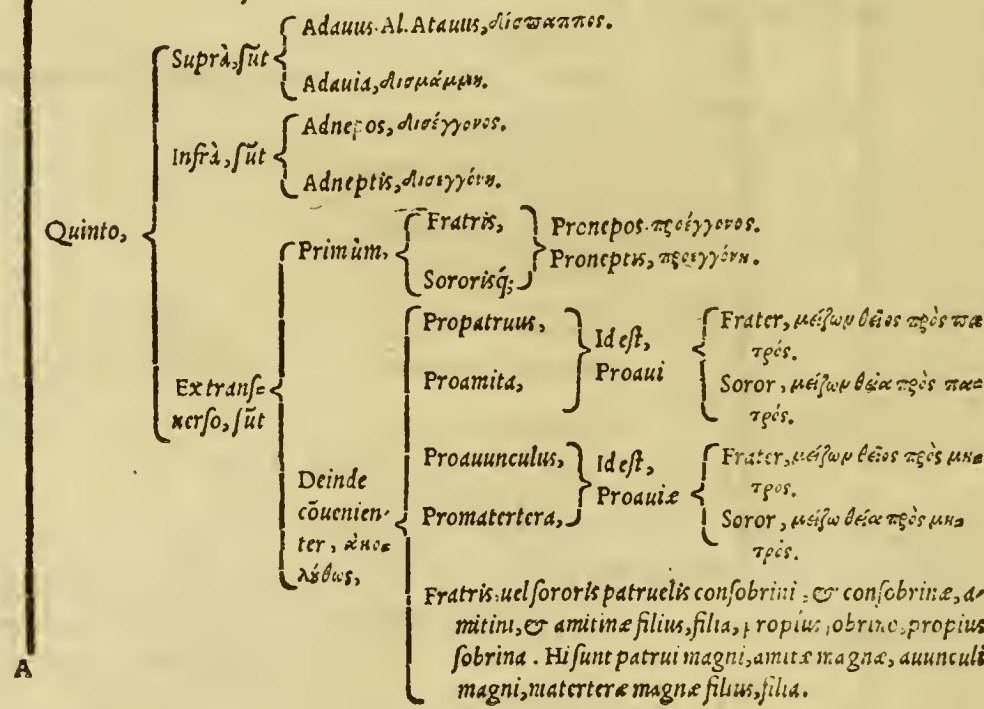 Quinto,
Suprà, sũt
Adauus. Al. Atauus, δίσπαππος.
Adauia, δισμάμμη.
Infrà, sũt
Adnepos, δισέγγονος.
Adneptis, δισεγγόνη.
Ex transſ=
uerſo, sũt
Primùm,
Fratris,
Sororisq́;
Pronepos. προέγγονος.
Proneptis, προεγγόνη.
Deinde
cõuenien-
ter, ἀκο=
λύθως,
Propatruus,
Proamita,
Id eſt,
Proaui
Frater, μείζωμ θεῖος πρὸς πα
τρός.
Soror, μείζωμ θεία πρὸς πα=
τρός.
Proauunculus,
Promatertera,
Id eſt,
Proauiæ
Frater, μείζωμ θεῖος πρὸς μη=
τρος.
Soror, μείζω θεία πρὸς μη=
τρός.
Fratris, uel ſororis patruelis conſobrini, & conſobrinæ, a-
mitini, & amitinæ filius, filia, propius ſobrino, propius
ſobrina. Hi ſunt patrui magni, amitæ magnæ, auunculi
magni, materteræ magnæ filius, filia.
A